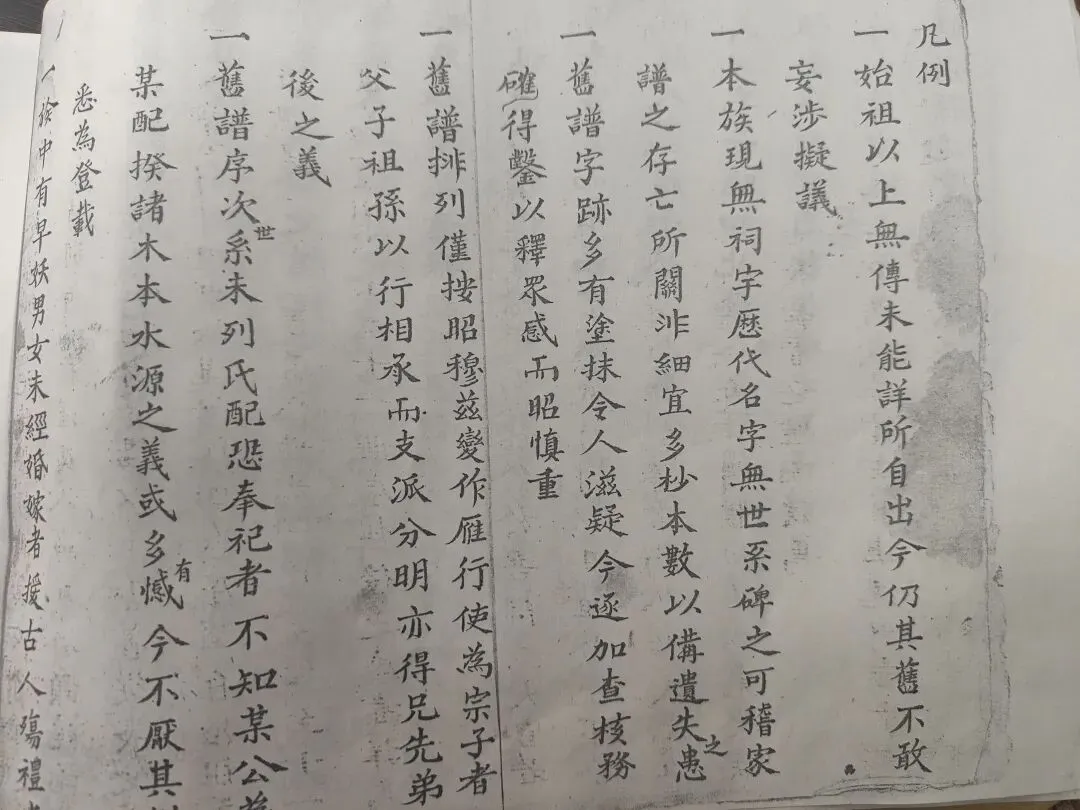 凡例
一始祖以上無傳未能詳所自出今仍其舊不敢
妄涉擬議
一本族現無祠宇歷代名字無世系碑之可稽家
譜之存亡所關非細宜多抄本數以俻遺失之患
一舊譜字跡多有塗抹令人滋疑今逐加查核務
確得鑿以釋眾感而昭慎重
一舊譜排列僅按昭穆茲變作雁行使為宗子者
父子祖孫以行相承而支派分明亦得兄先弟
後之義
一舊譜序次世系未列氏配恐奉祀者不知某公為
某配揆諸木本水源之義或多有憾今不厭其
悉為登載
一 中有早妖男女未經婚嫁者援古人殤禮